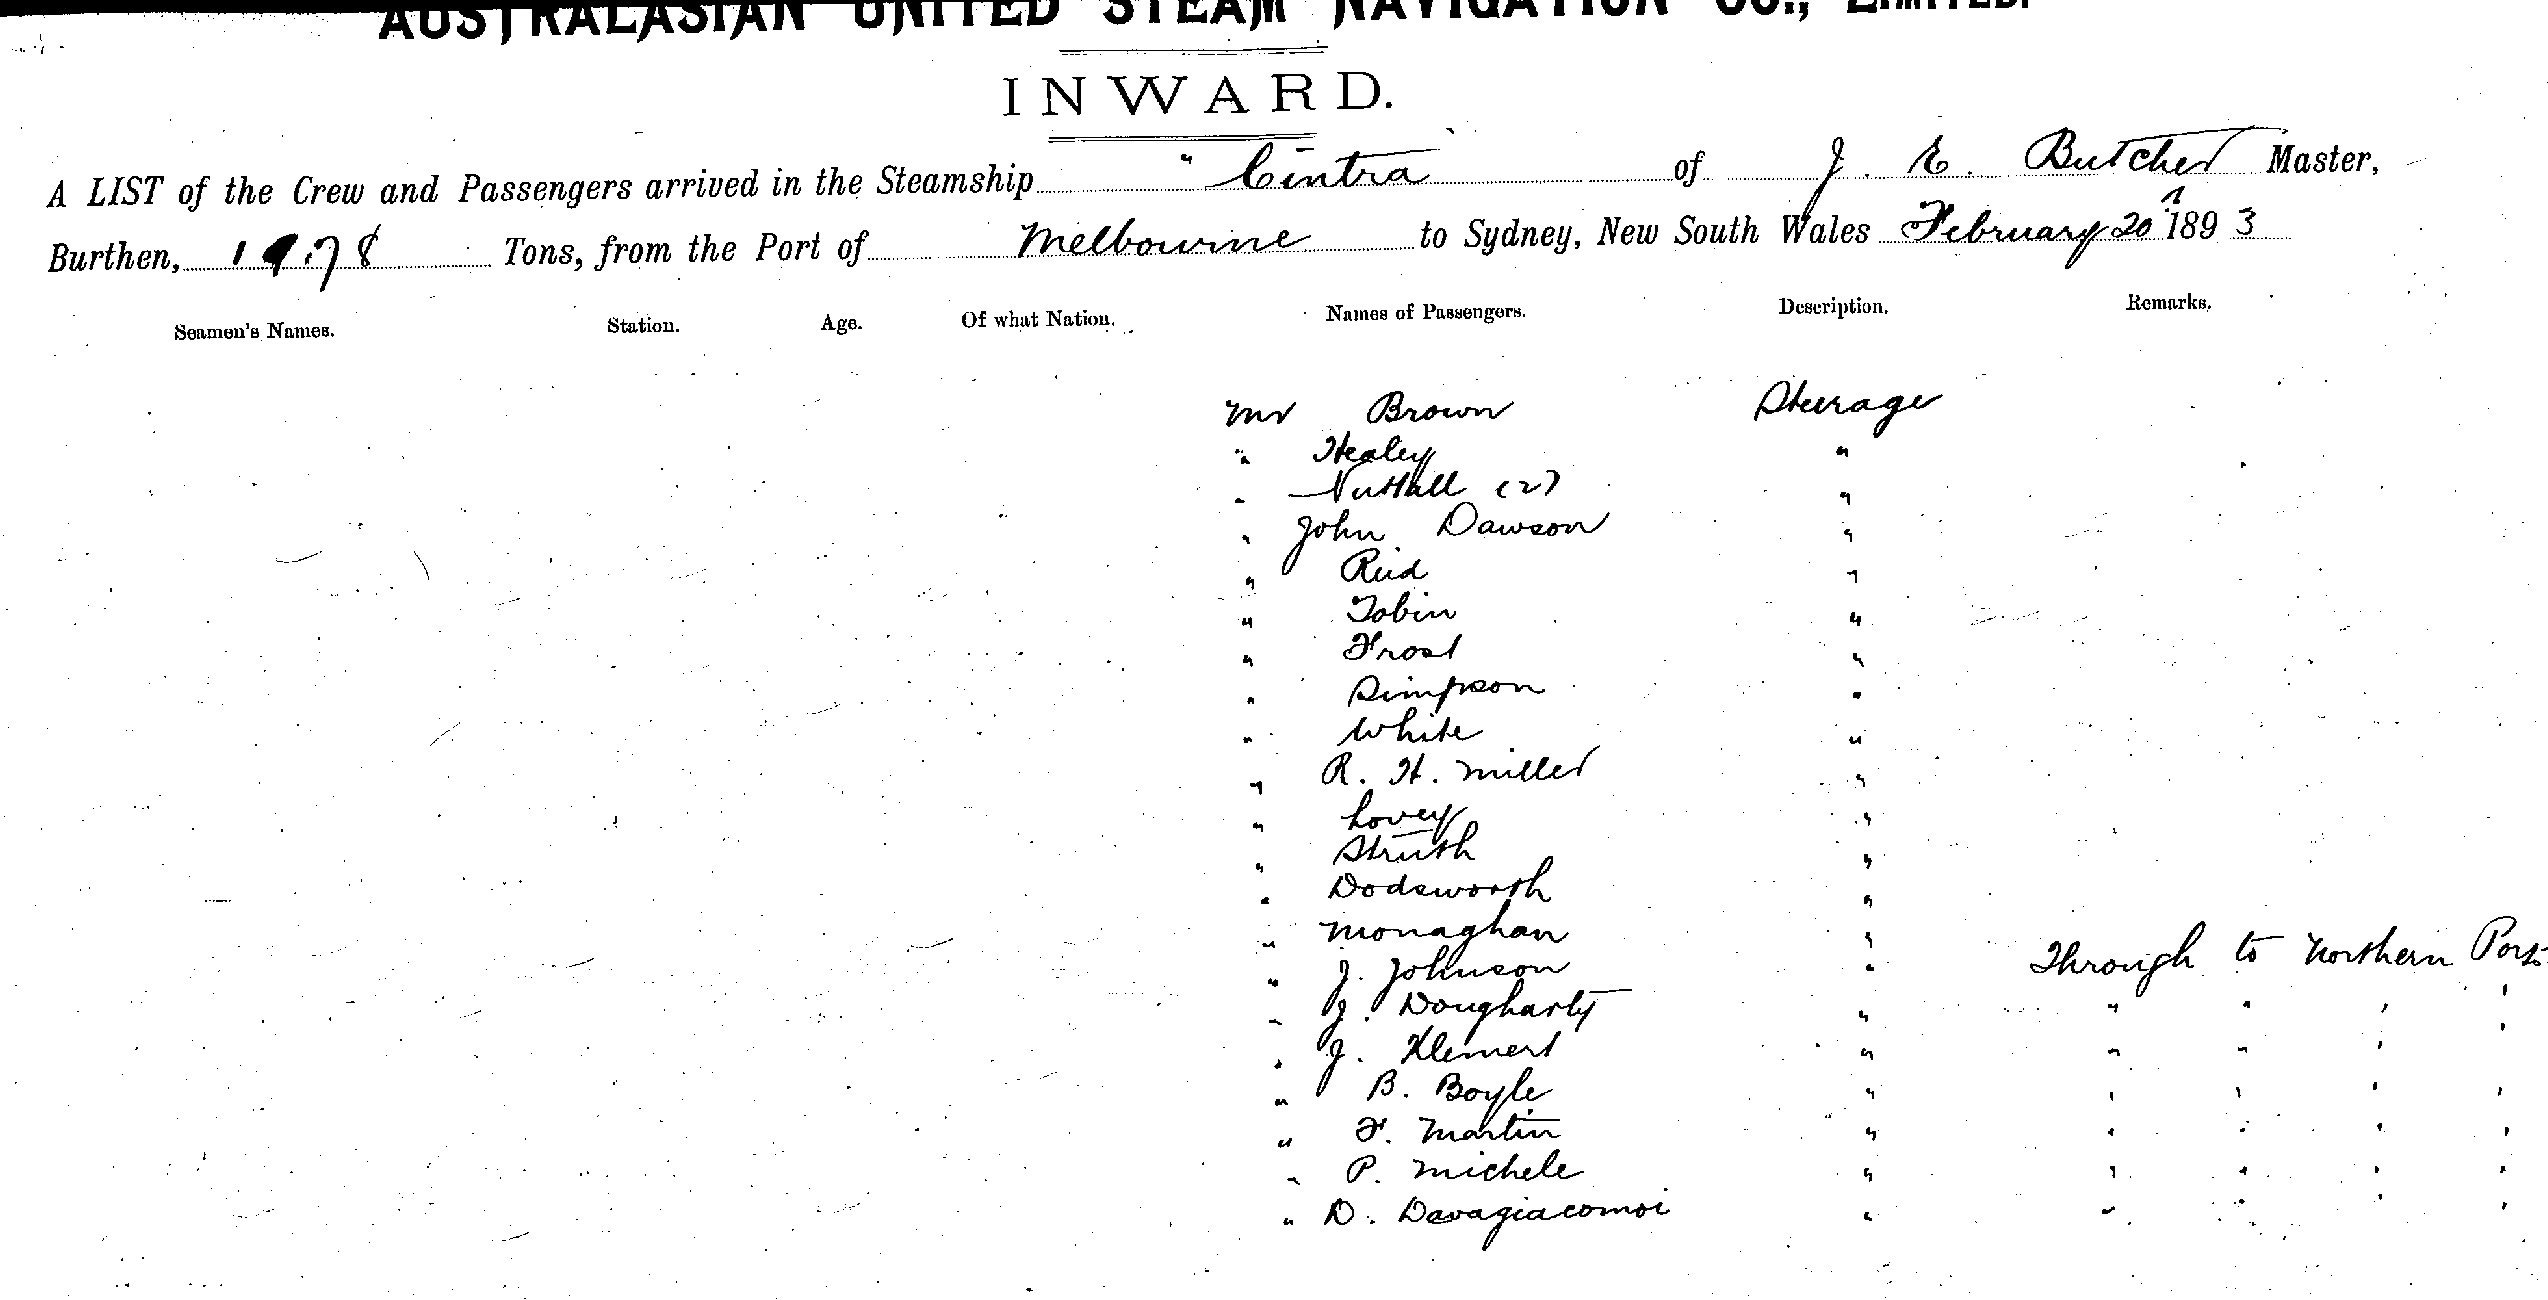 AUSTRALASIAN UNITED STEAM NAVIGATION CO., LIMITED.
INWARD.
A LIST of the Crew and Passengers arrived in the Steamship "Cintra" of J. E. Butcher Master,
Burthen, 1978 Tons, from the Port of Melbourne to Sydney, New South Wales February 20 1893
Seamen's Names. Station. Age. Of what Nation. Names of Passengers. Description. Remarks.
Mr Brown Steerage
" Healey "
" Nuttall (2) "
" John Dawson "
" Reid "
" Tobin "
" Frost "
" Simpson "
" White "
" R. H. Miller "
" Lovey "
" Struth "
" Dodsworth "
" Monaghan "
" J. Johnson " Through to Northern Ports
" J. Dougharty " " " " "
" J. Klemert " " " " "
" B. Boyle " " " " "
" F. Martin " " " " "
" P. Michele " " " " "
" D. Davagiacomoi " " " " "